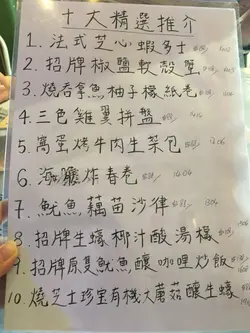 十大精選推介
1. 法式芝心蝦多士
2. 招牌椒鹽軟殼蟹
3. 燒吞拿魚柚子檬紙卷
4. 三色雞翼拼盤
5. 窩蛋烤牛肉生菜包
6. 海膽炸春卷
7. 魷魚藕苗沙律
8. 招牌生蠔椰汁酸湯檬
9. 招牌原隻魷魚釀咖哩炒飯
10. 燒芝士珍宝有機大蘑菇釀生蠔